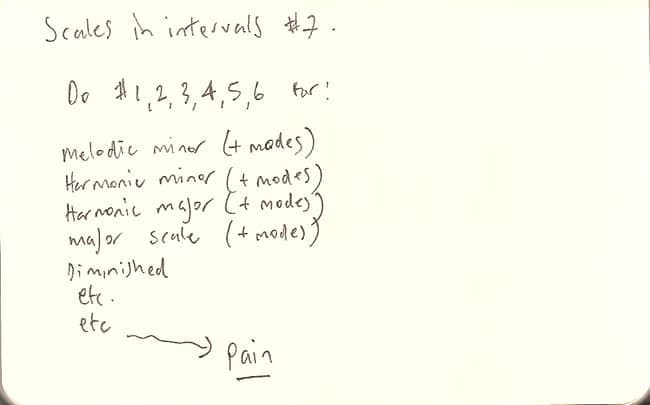 Scales in intervals #7.
Do #1,2,3,4,5,6 for:
Melodic minor (+ modes)
Harmonic minor (+ modes)
Harmonic major (+ modes)
major scale (+ modes)
Diminished
etc.
etc
Pain